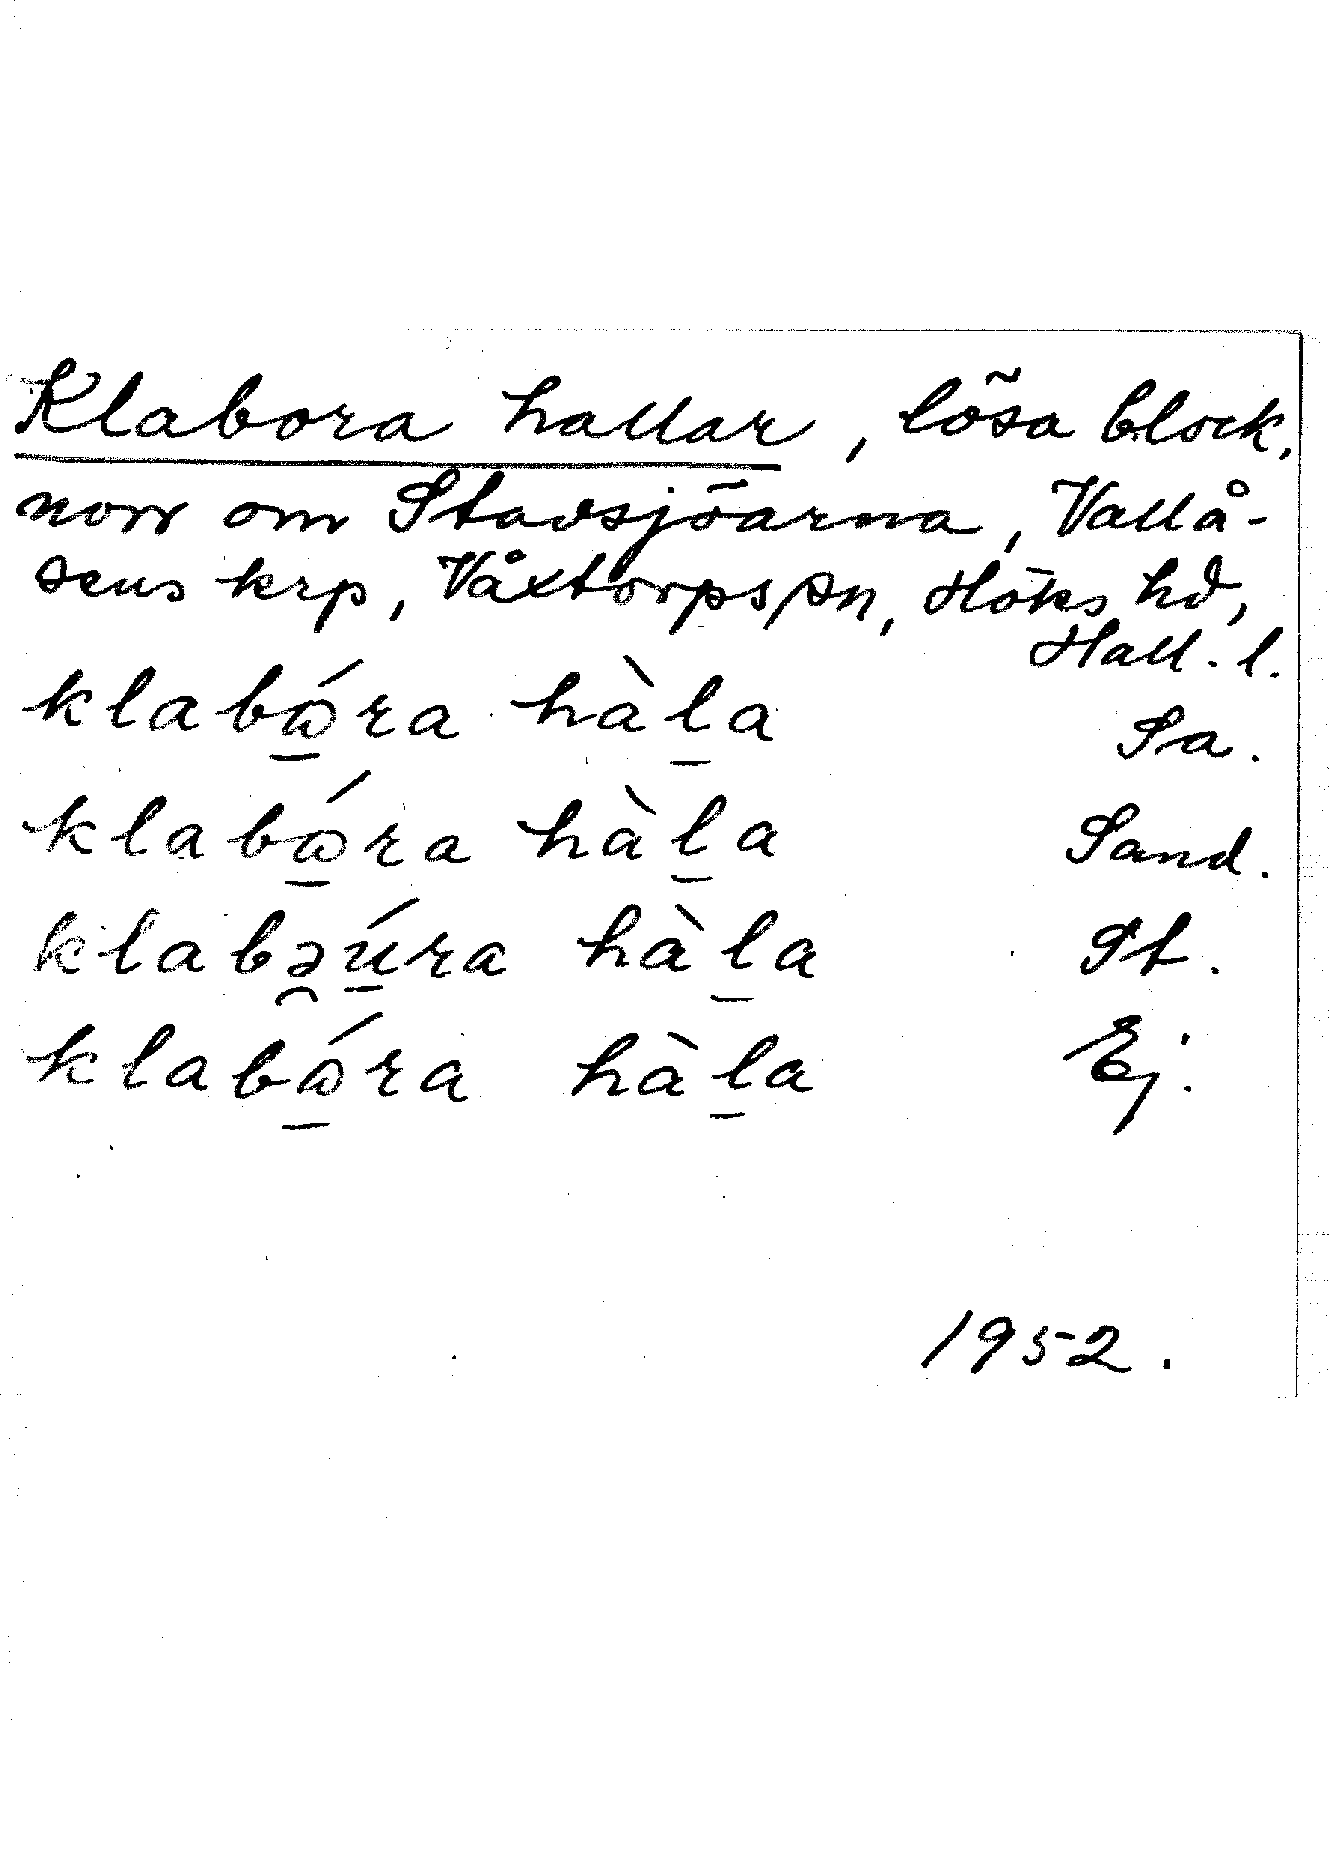 Klabora hallar, lösa block,
norr om Stavsjöarna, Vallå-
sens krp, Våxtorps sn, Höks hd,
Hall. l.
klabώ̱ra hàḻa Sa.
klabώ̱ra hàḻa Sand.
klabə̯ú̱ra hàḻa St.
klabώ̱ra hàḻa Ej.
1952.